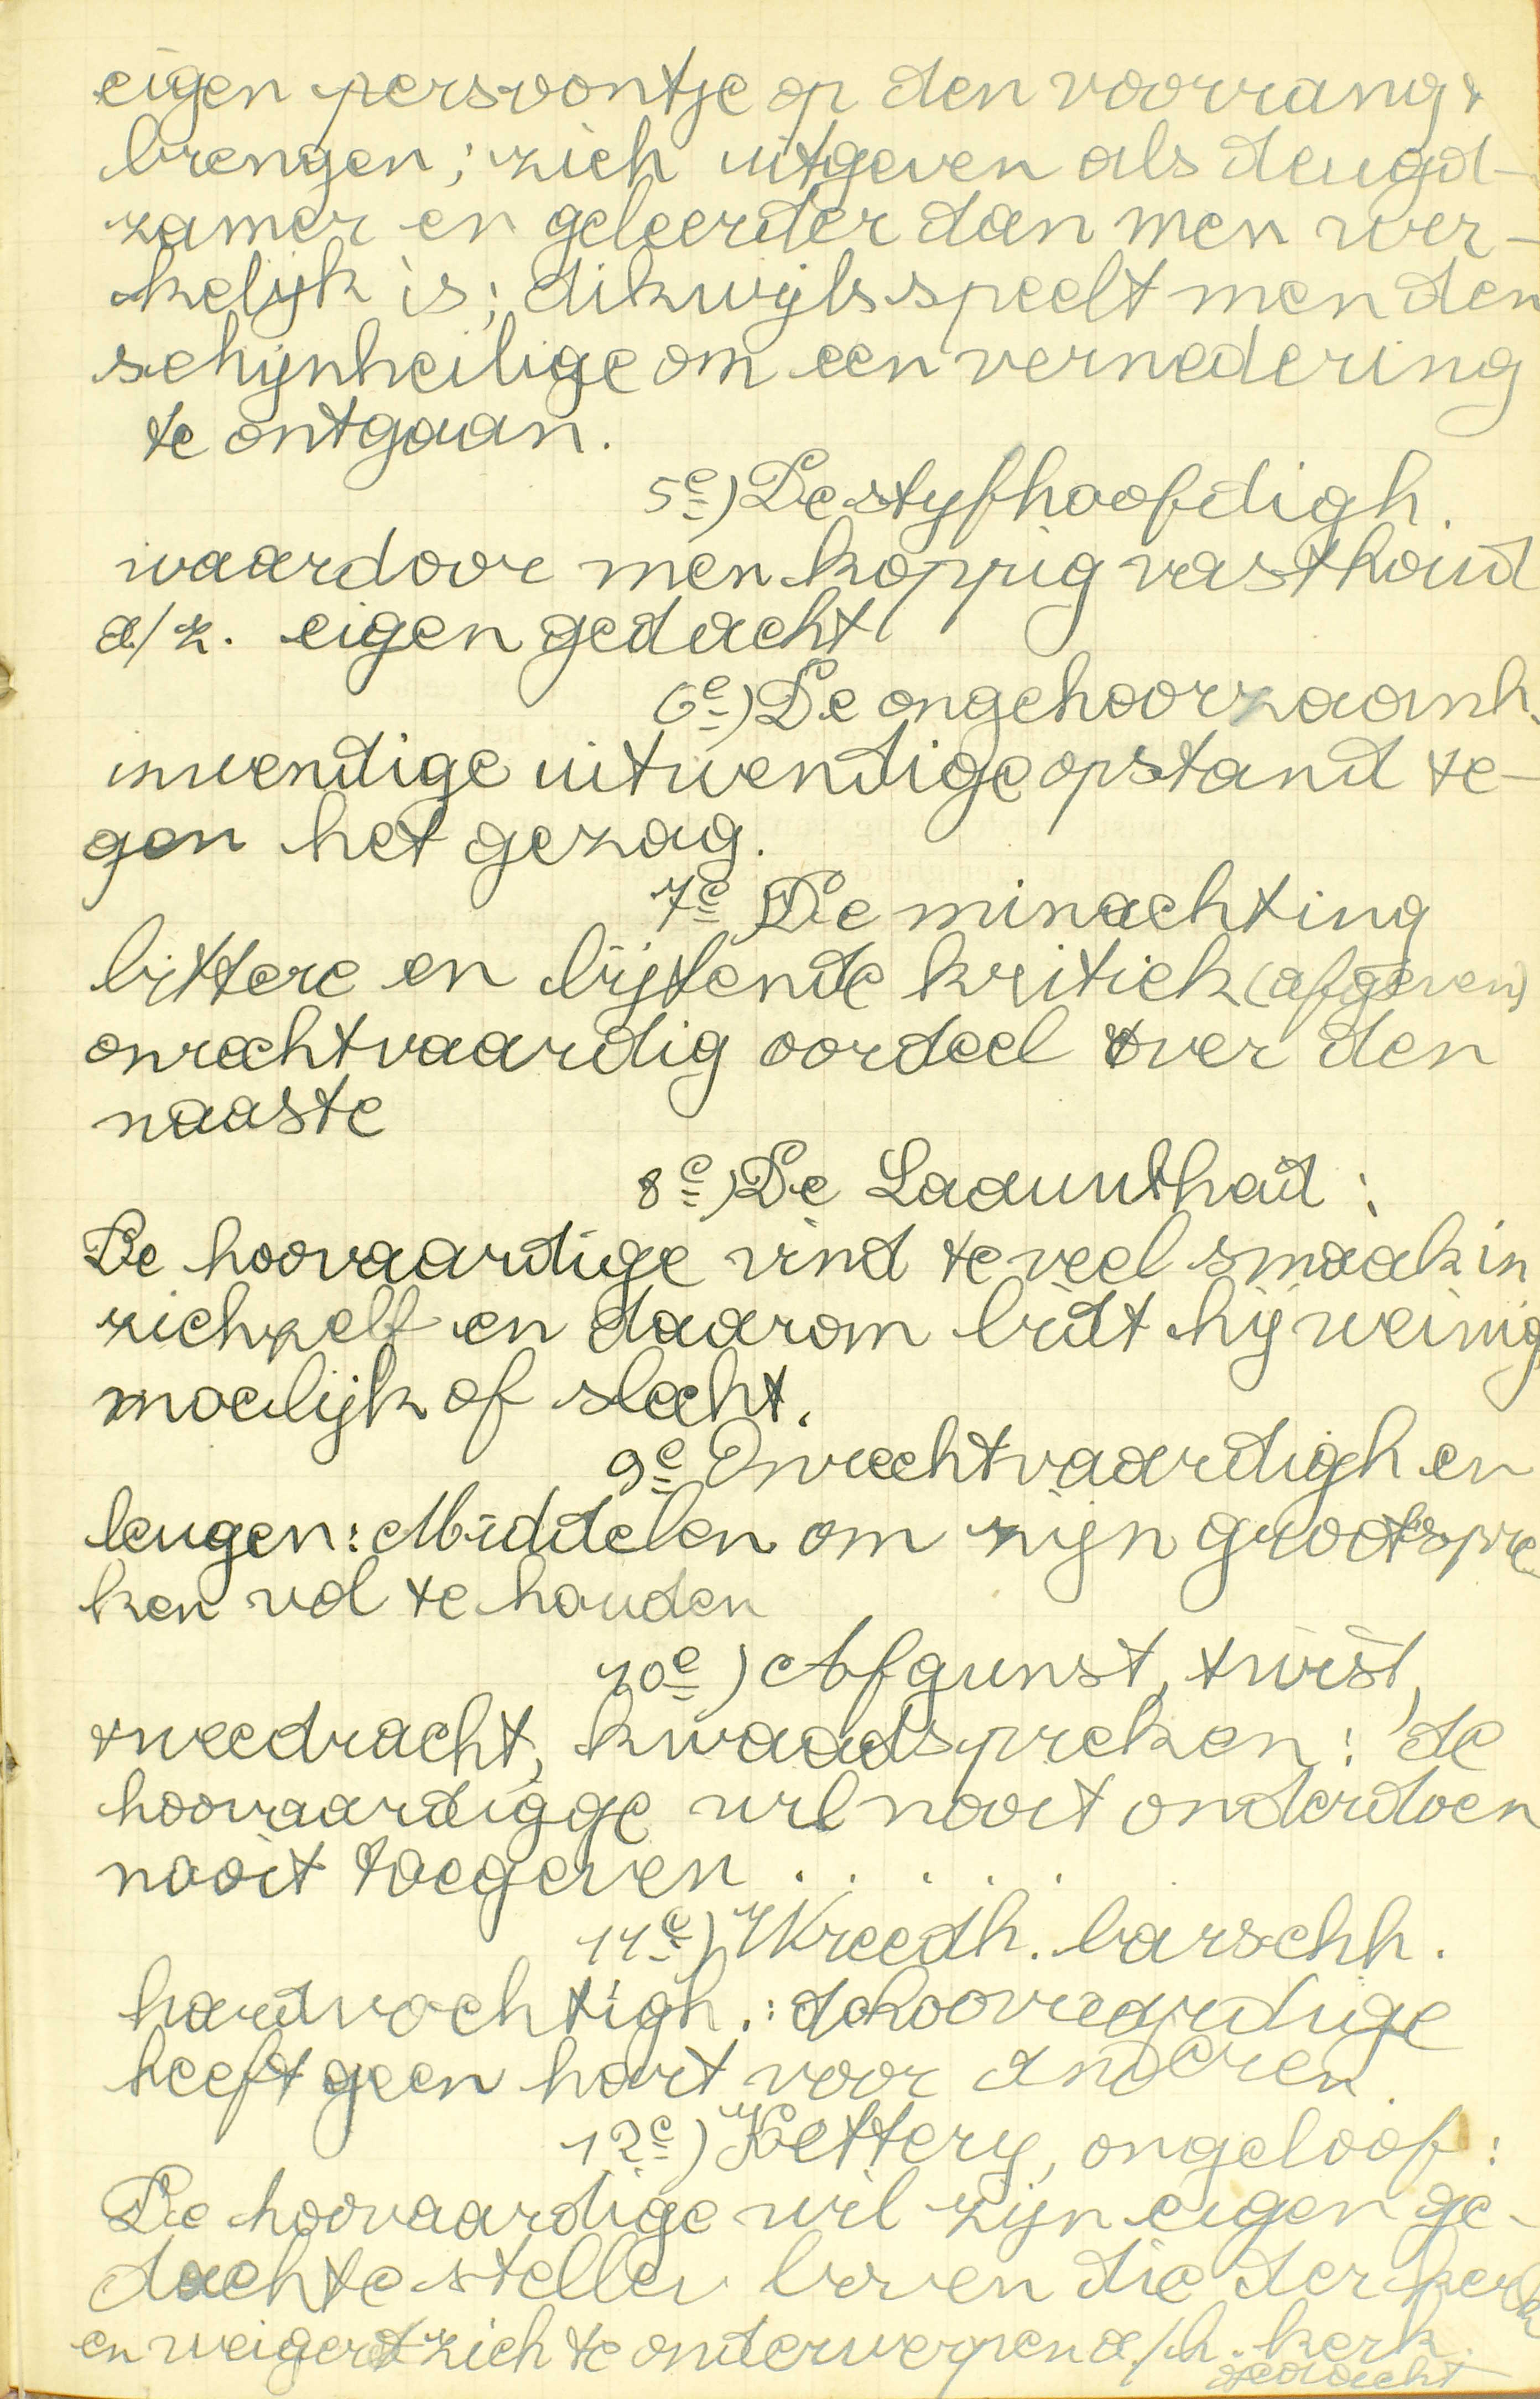 eigen persoontje op den voorrang
brengen; zich uitgeven als deugd-
zamer en geleerder dan men wer-
kelijk is; dikwijls speelt men den
schijnheilige om een vernedering
te ontgaan.
5e) De styfhoofdigh.
waardoor men koppig vasthoud
a/z. eigen gedacht
6e) De ongehoorzaamh.
inwendige uitwendige opstand te-
gen het gezag.
7e) De minachting
bittere en bijtende kritiek (afgeven)
onrechtvaardig oordeel over den
naaste
8e) De Laauwhaid:
De hoovaardige vind te veel smaak in
zichzelf en daarom bidt hij weinig
moeilijk of slecht.
9e Onrechtvaardigh en
leugen: Middelen om zijn grootspre-
ken vol te houden
10e) Afgunst, twist,
tweedracht, kwaadspreken: de
hoovaardigge wil nooit onderdoen
nooit toegeven . . . . .
11e) Wreedh. barschh.
hardvochtigh.: d hoovaardige
heeft geen hart voor anderen.
12e) Kettery, ongeloof:
De hoovaardige wil zijn eigen ge-
dachte stellen boven die der kerk
en weigerd zich te onderwerpen a/h. kerk.
gedacht